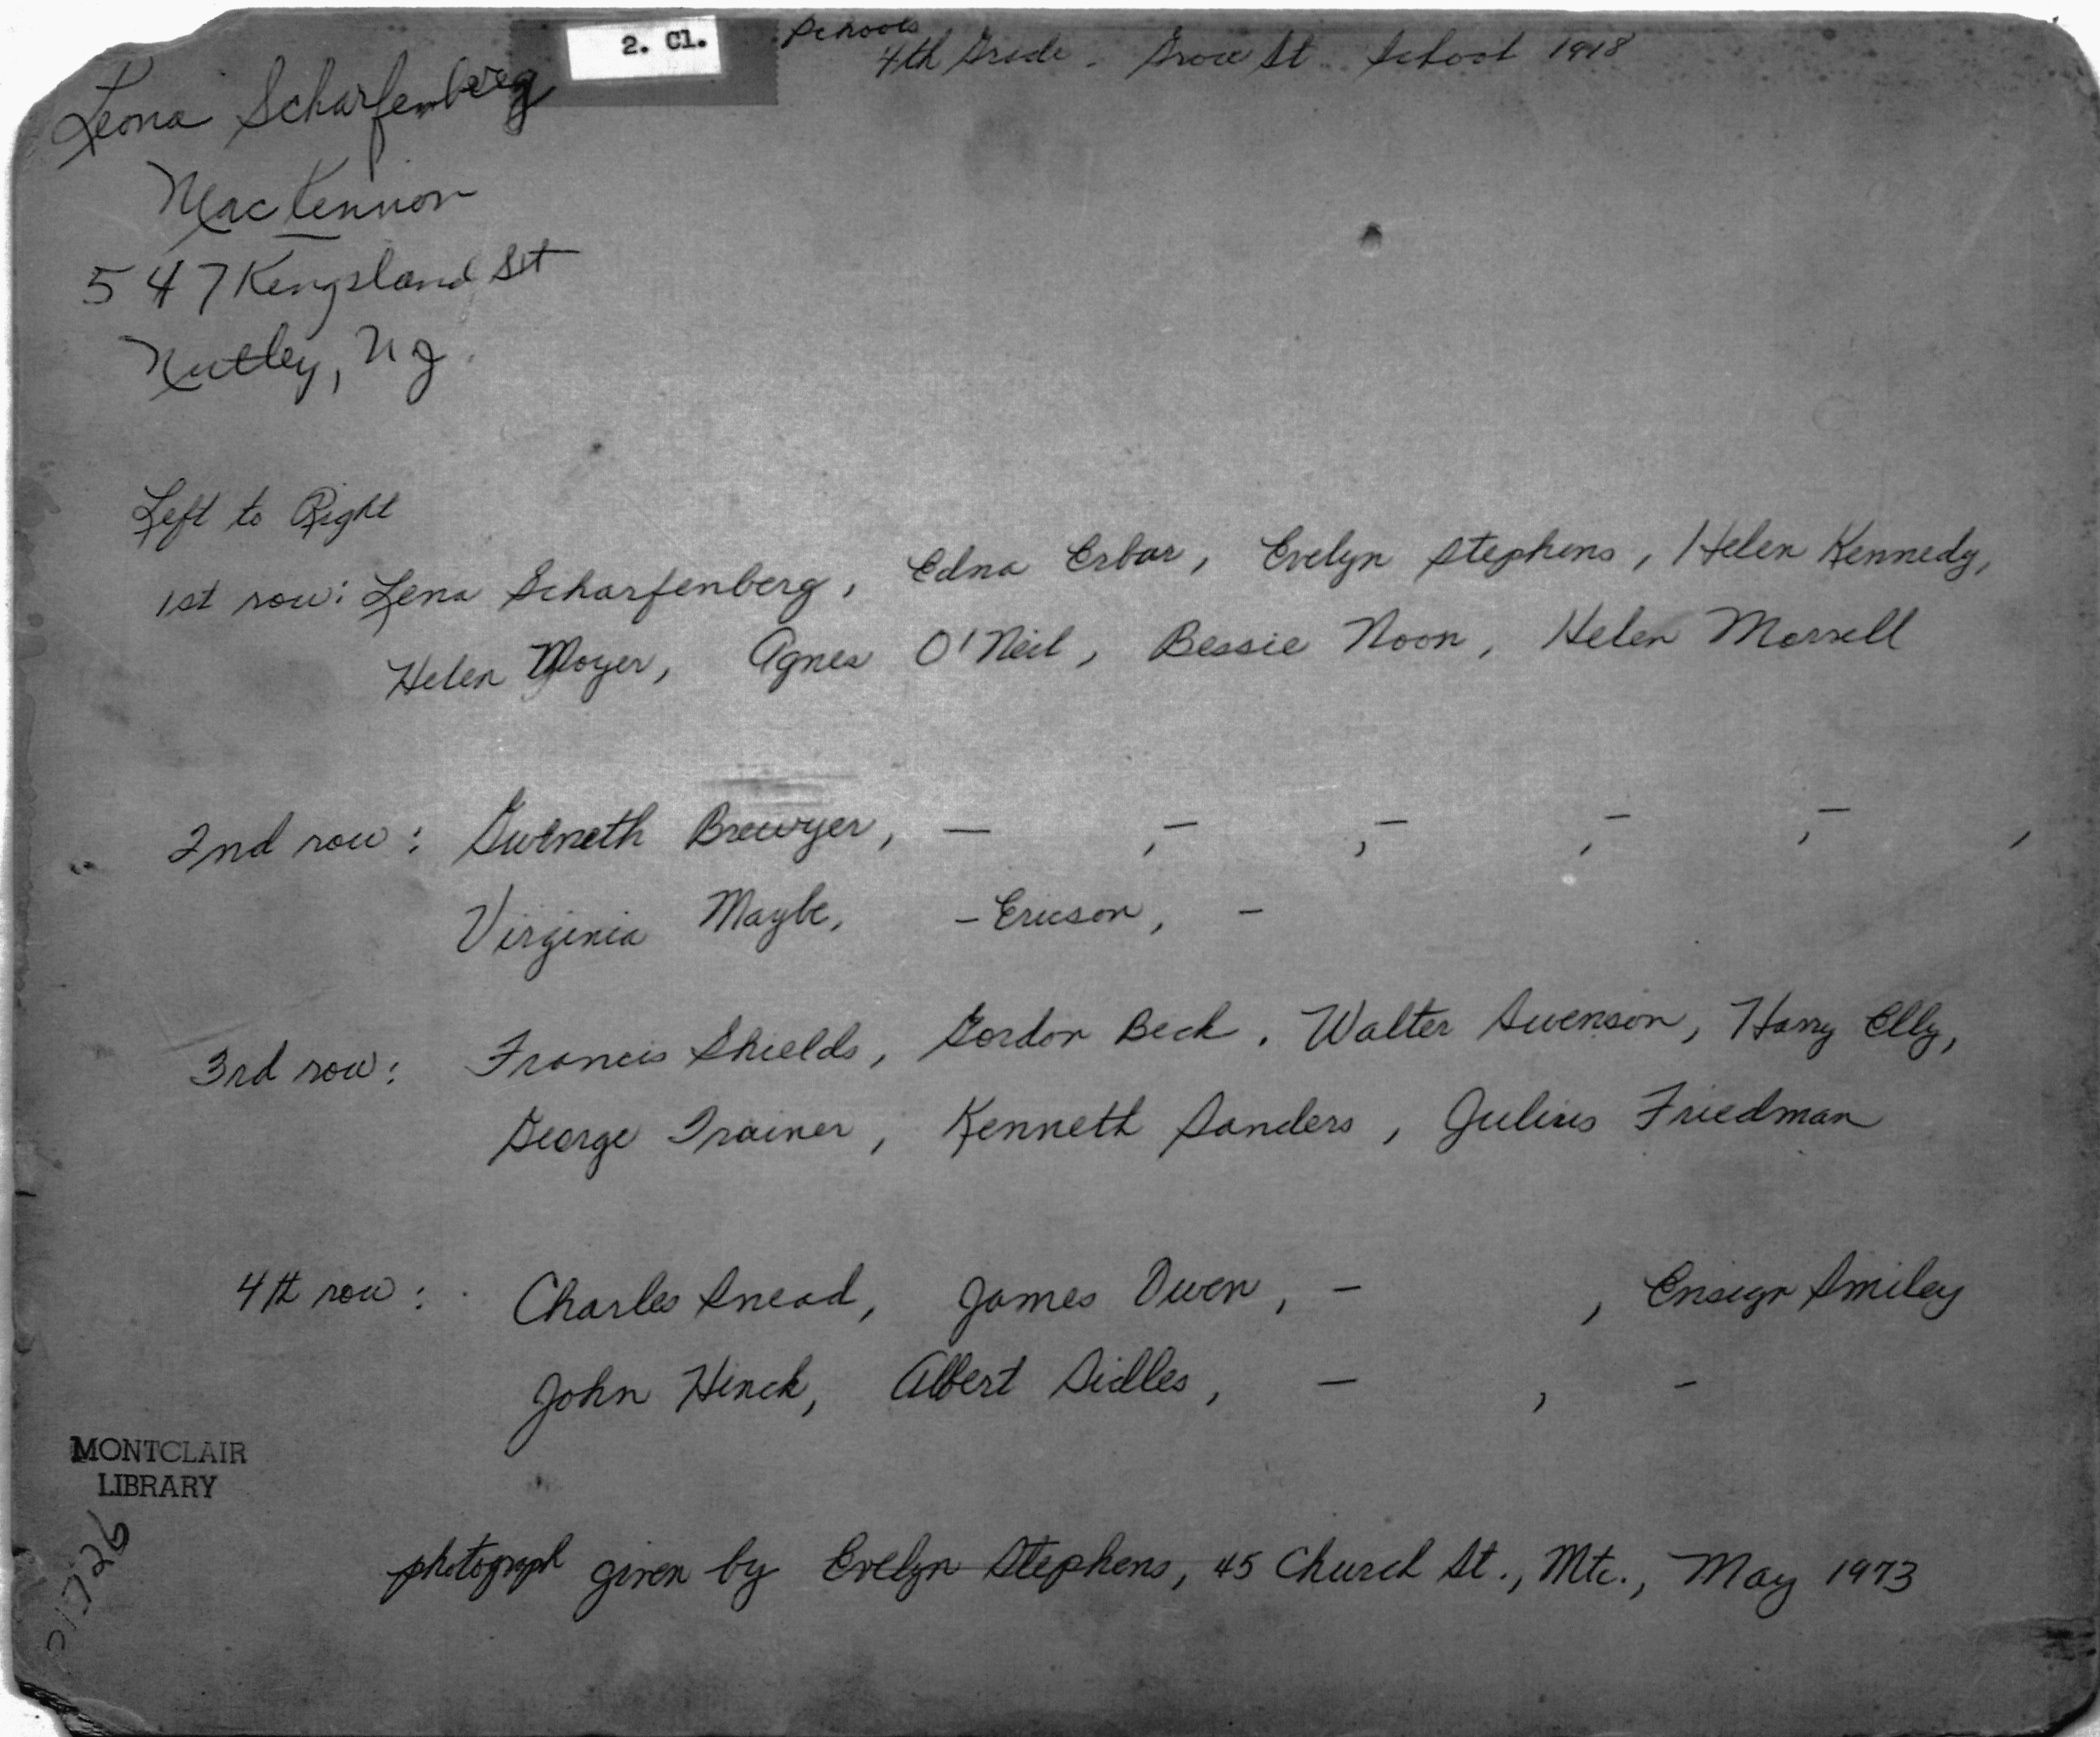 2. Cl.
Schools
4th Grade - Grove St. School 1918
Leona Scharfenberg
MacKennon
547 Kingsland St
Nutley, NJ
Left to Right
1st row: Lena Scharfenberg, Edna Erbar, Evelyn Stephens, Helen Kennedy,
Helen Moyer, Agnes O'Neil, Bessie Noon, Helen Morrell
2nd row: Gweneth Brewyer, — , – , – , – , – ,
Virginia Maybe, – Ericson, –
3rd row: Francis Shields, Gordon Beck, Walter Swenson, Harry Elly,
George Trainer, Kenneth Sanders, Julius Friedman
4th row: Charles Snead, James Owen, – , Ensign Smiley
John Hinck, Albert Sidles, – , –
MONTCLAIR
LIBRARY
photograph given by Evelyn Stephens, 45 Church St., Mtc., May 1973